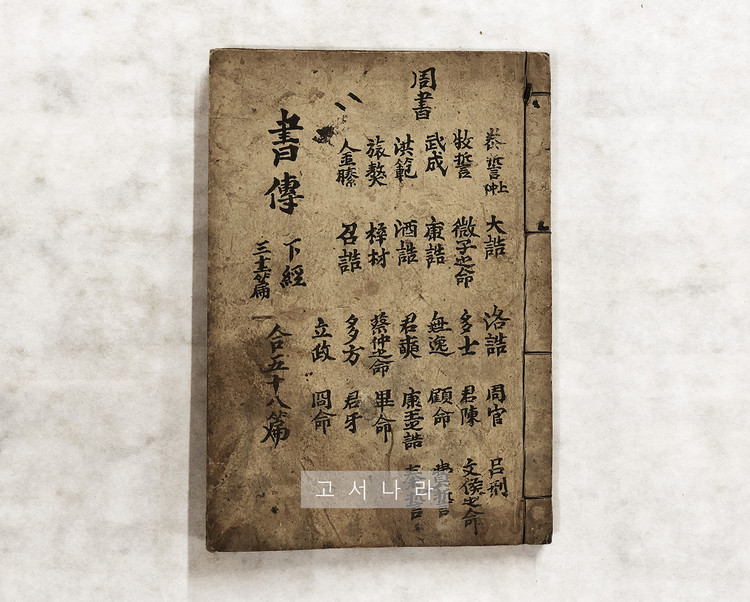 周書
泰誓 上仲
牧誓
武成
洪範
旅獒
金縢
大誥
微子之命
康誥
酒誥
梓材
召誥
洛誥
多士
無逸
君奭
蔡仲之命
多方
立政
周官
君陳
顧命
康王之誥
畢命
君牙
冏命
呂刑
文侯之命
費誓
秦誓
書傳
下經
三十二篇
合五十八篇
고서나라